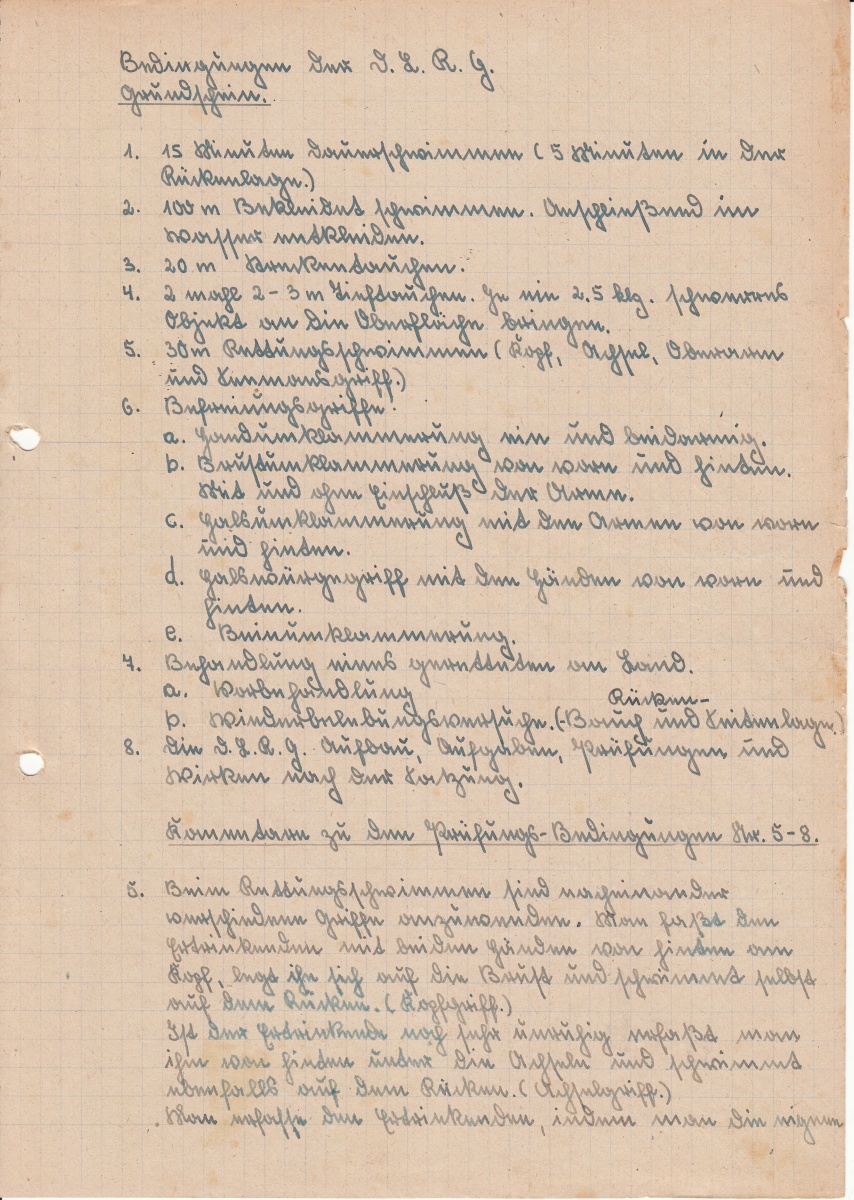 Bedingungen der D. L. R. G.
Grundschein.
1. 15 Minuten Dauerschwimmen (5 Minuten in der
Rückenlage.)
2. 100 m Bekleidet schwimmen. Anschließend im
Wasser entkleiden.
3. 20 m Streckentauchen.
4. 2 mahl 2-3 m Tieftauchen. Je ein 2.5 klg. schwerres
Objekt an die Oberfläche bringen.
5. 30 m Rettungsschwimmen (Kopf, Achsel, Oberarm
und Seemansgriff.)
6. Befreiungsgriffe:
a. Handumklammerung ein und beidarmig.
b. Brustumklammerung von vorn und hinten.
Mit und ohne Einschluß der Arme.
c. Halsumklammerung mit den Armen von vorn
und hinten.
d. Halswürgegriff mit den Händen von vorn und
hinten.
e. Beinumklammerung.
7. Behandlung eines geretteten an Land.
a. Vorbehandlung
Rücken-
b. Wiederbelebungsversuche. (-Bauch und Seitenlage.)
8. Die D. L. R. G. Aufbau, Aufgaben, Prüfungen und
Wirken nach der Satzung.
Komentare zu den Prüfungs-Bedingungen Nr. 5-8.
5. Beim Rettungsschwimmen sind nacheinander
verschiedene Griffe anzuwenden. Man faßt den
Ertrinkenden mit beiden Händen von hinten am
Kopf, legt ihn sich auf die Brust und schwimmt selbst
auf dem Rücken. (Kopfgriff.)
Ist der Ertrinkende noch sehr unruhig erfaßt man
ihn von hinten unter die Achseln und schwimmt
ebenfalls auf dem Rücken. (Achselgriff.)
Man erfasse den Ertrinkenden, indem man die eignen